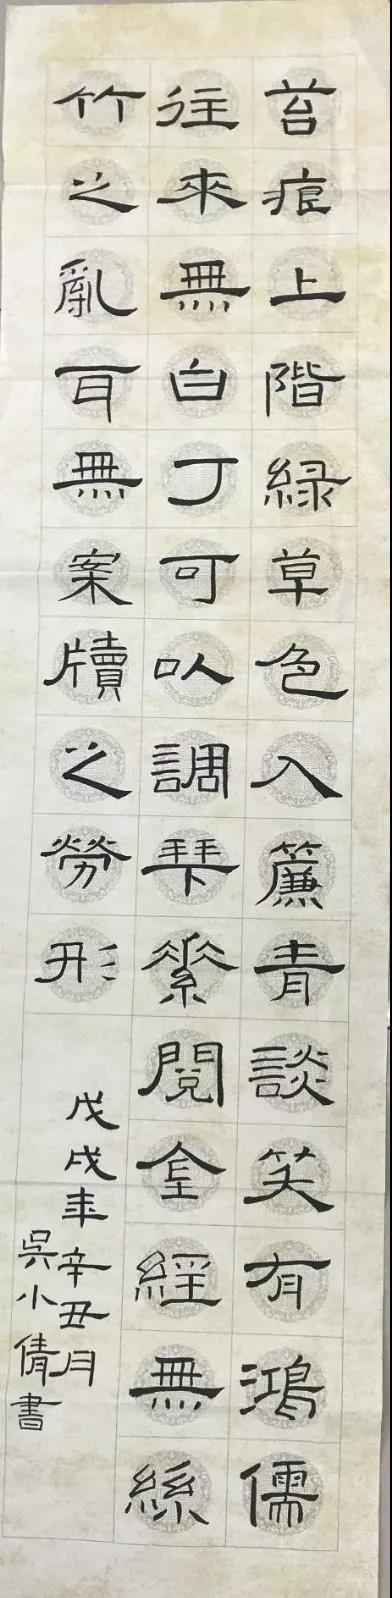 苔痕上階緑草色入簾青談笑有鴻儒
往來無白丁可以調琴素閱金經無絲
竹之亂耳無案牘之勞形
戊戌年辛丑月
吳小倩書